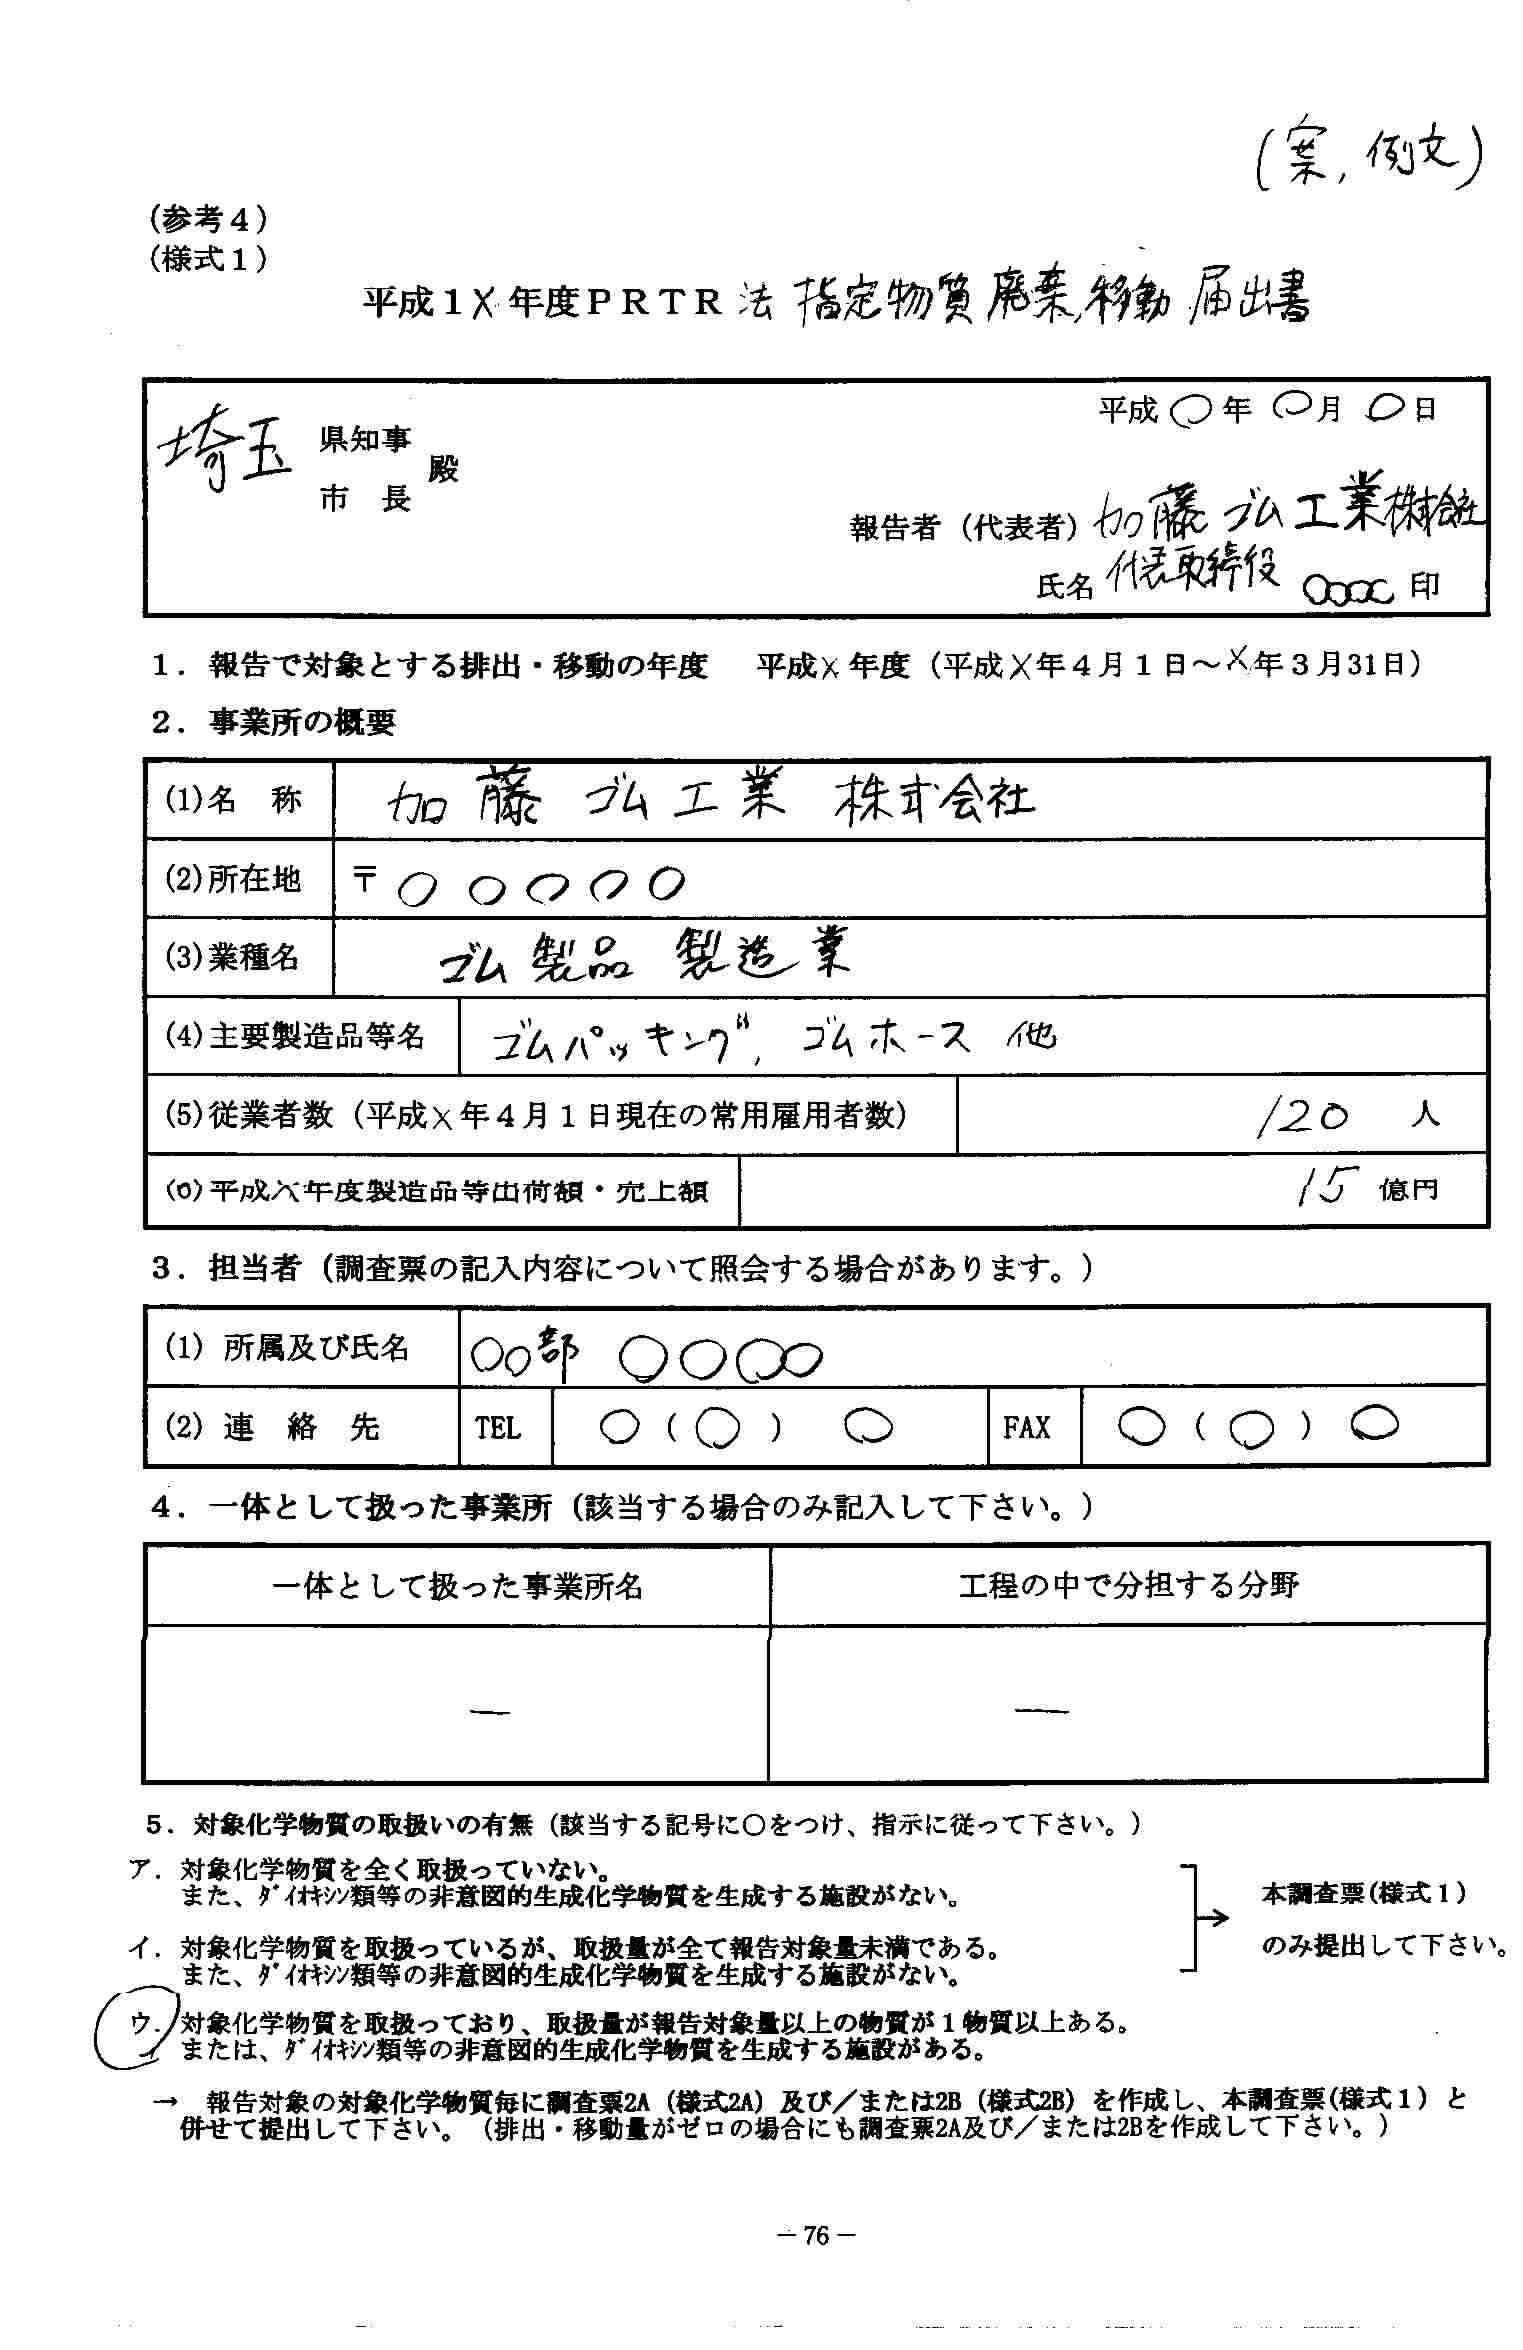 (案, 例文)
(参考4)
(様式1)
平成1X年度PRTR法 指定物質廃棄,移動 届出書
平成○年○月○日
埼玉 県知事
市 長 殿
報告者(代表者) 加藤ゴム工業株式会社
氏名 代表取締役 ○○○○ 印
1. 報告で対象とする排出・移動の年度 平成X年度(平成X年4月1日~X年3月31日)
2. 事業所の概要
(1)名 称 加藤ゴム工業 株式会社
(2)所在地 〒○○○○○
(3)業種名 ゴム製品 製造業
(4)主要製造品等名 ゴムパッキング, ゴムホース 他
(5)従業者数(平成X年4月1日現在の常用雇用者数) 120 人
(6)平成X年度製造品等出荷額・売上額 15 億円
3. 担当者(調査票の記入内容について照会する場合があります。)
(1) 所属及び氏名 ○○部 ○○○○
(2) 連 絡 先 TEL ○(○) ○ FAX ○(○) ○
4. 一体として扱った事業所(該当する場合のみ記入して下さい。)
一体として扱った事業所名 工程の中で分担する分野
— —
5. 対象化学物質の取扱いの有無(該当する記号に○をつけ、指示に従って下さい。)
ア. 対象化学物質を全く取扱っていない。
また、ダイオキシン類等の非意図的生成化学物質を生成する施設がない。
本調査票(様式1)
イ. 対象化学物質を取扱っているが、取扱量が全て報告対象量未満である。
のみ提出して下さい。
また、ダイオキシン類等の非意図的生成化学物質を生成する施設がない。
ウ. 対象化学物質を取扱っており、取扱量が報告対象量以上の物質が1物質以上ある。
または、ダイオキシン類等の非意図的生成化学物質を生成する施設がある。
→ 報告対象の対象化学物質毎に調査票2A(様式2A)及び/または2B(様式2B)を作成し、本調査票(様式1)と
併せて提出して下さい。(排出・移動量がゼロの場合にも調査票2A及び/または2Bを作成して下さい。)
— 76 —